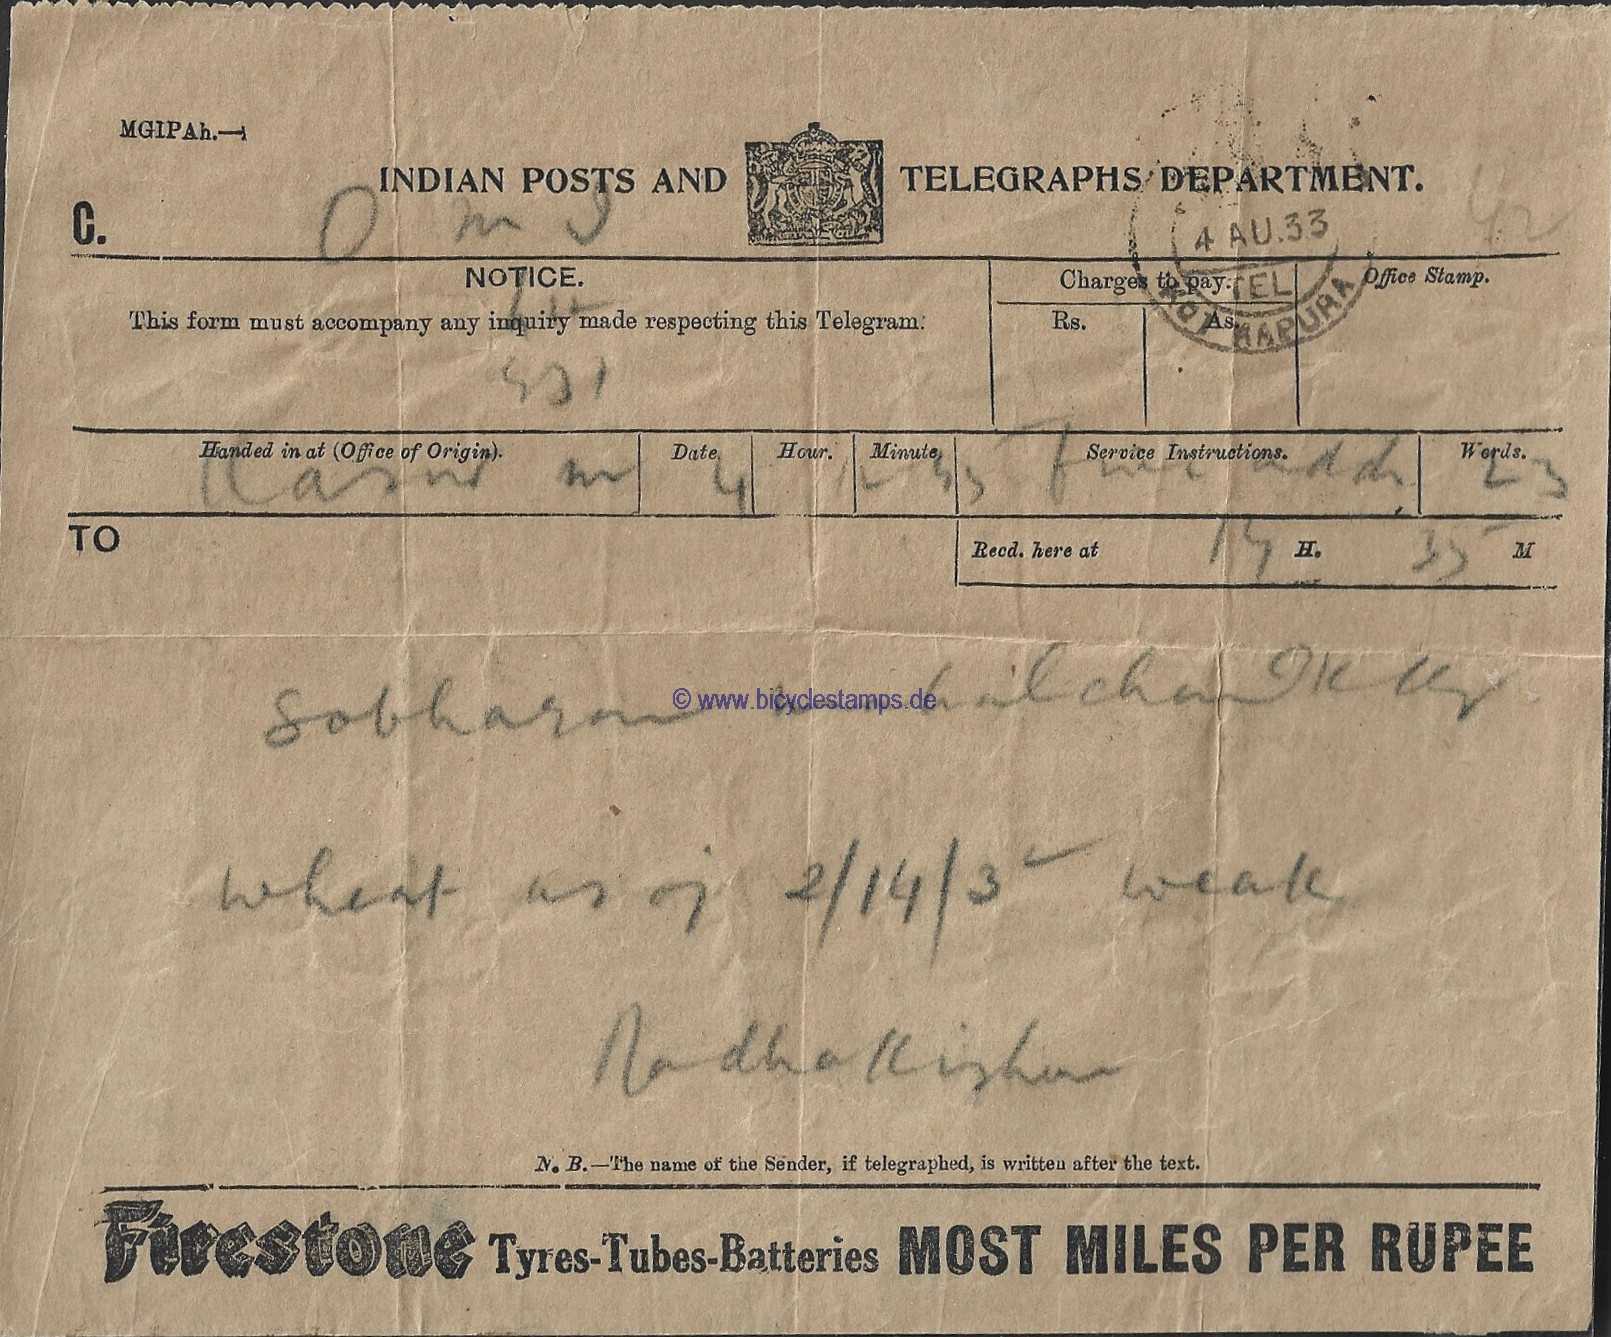 MGIPAh.—
INDIAN POSTS AND TELEGRAPHS DEPARTMENT.
C.
4 AU.33
TEL
KOT KAPURA
NOTICE.
This form must accompany any inquiry made respecting this Telegram.
Charges to pay.
Rs. As.
Office Stamp.
Handed in at (Office of Origin). Date. Hour. Minute. Service Instructions. Words.
Kasur 4 12 35 23
TO
Recd. here at H. 35 M
© www.bicyclestamps.de
wheat as of 2/14/3 weak
Radhakishan
N. B.—The name of the Sender, if telegraphed, is written after the text.
Firestone Tyres-Tubes-Batteries MOST MILES PER RUPEE